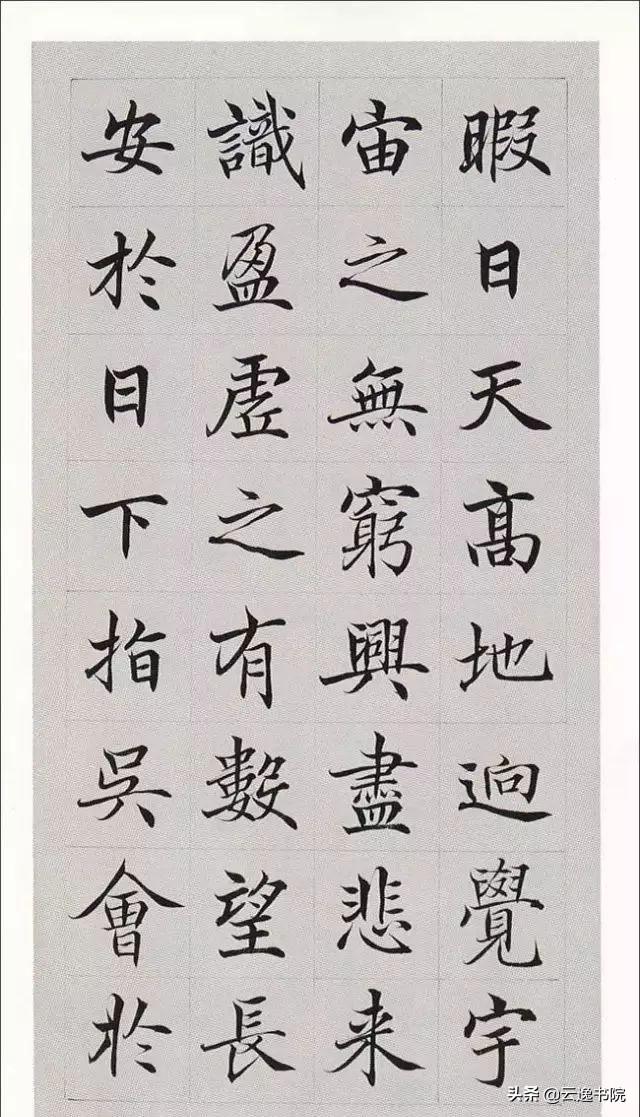 暇日天高地迥覺宇
宙之無窮興盡悲来
識盈虛之有數望長
安於日下指吳會於
头条 @云逸书院